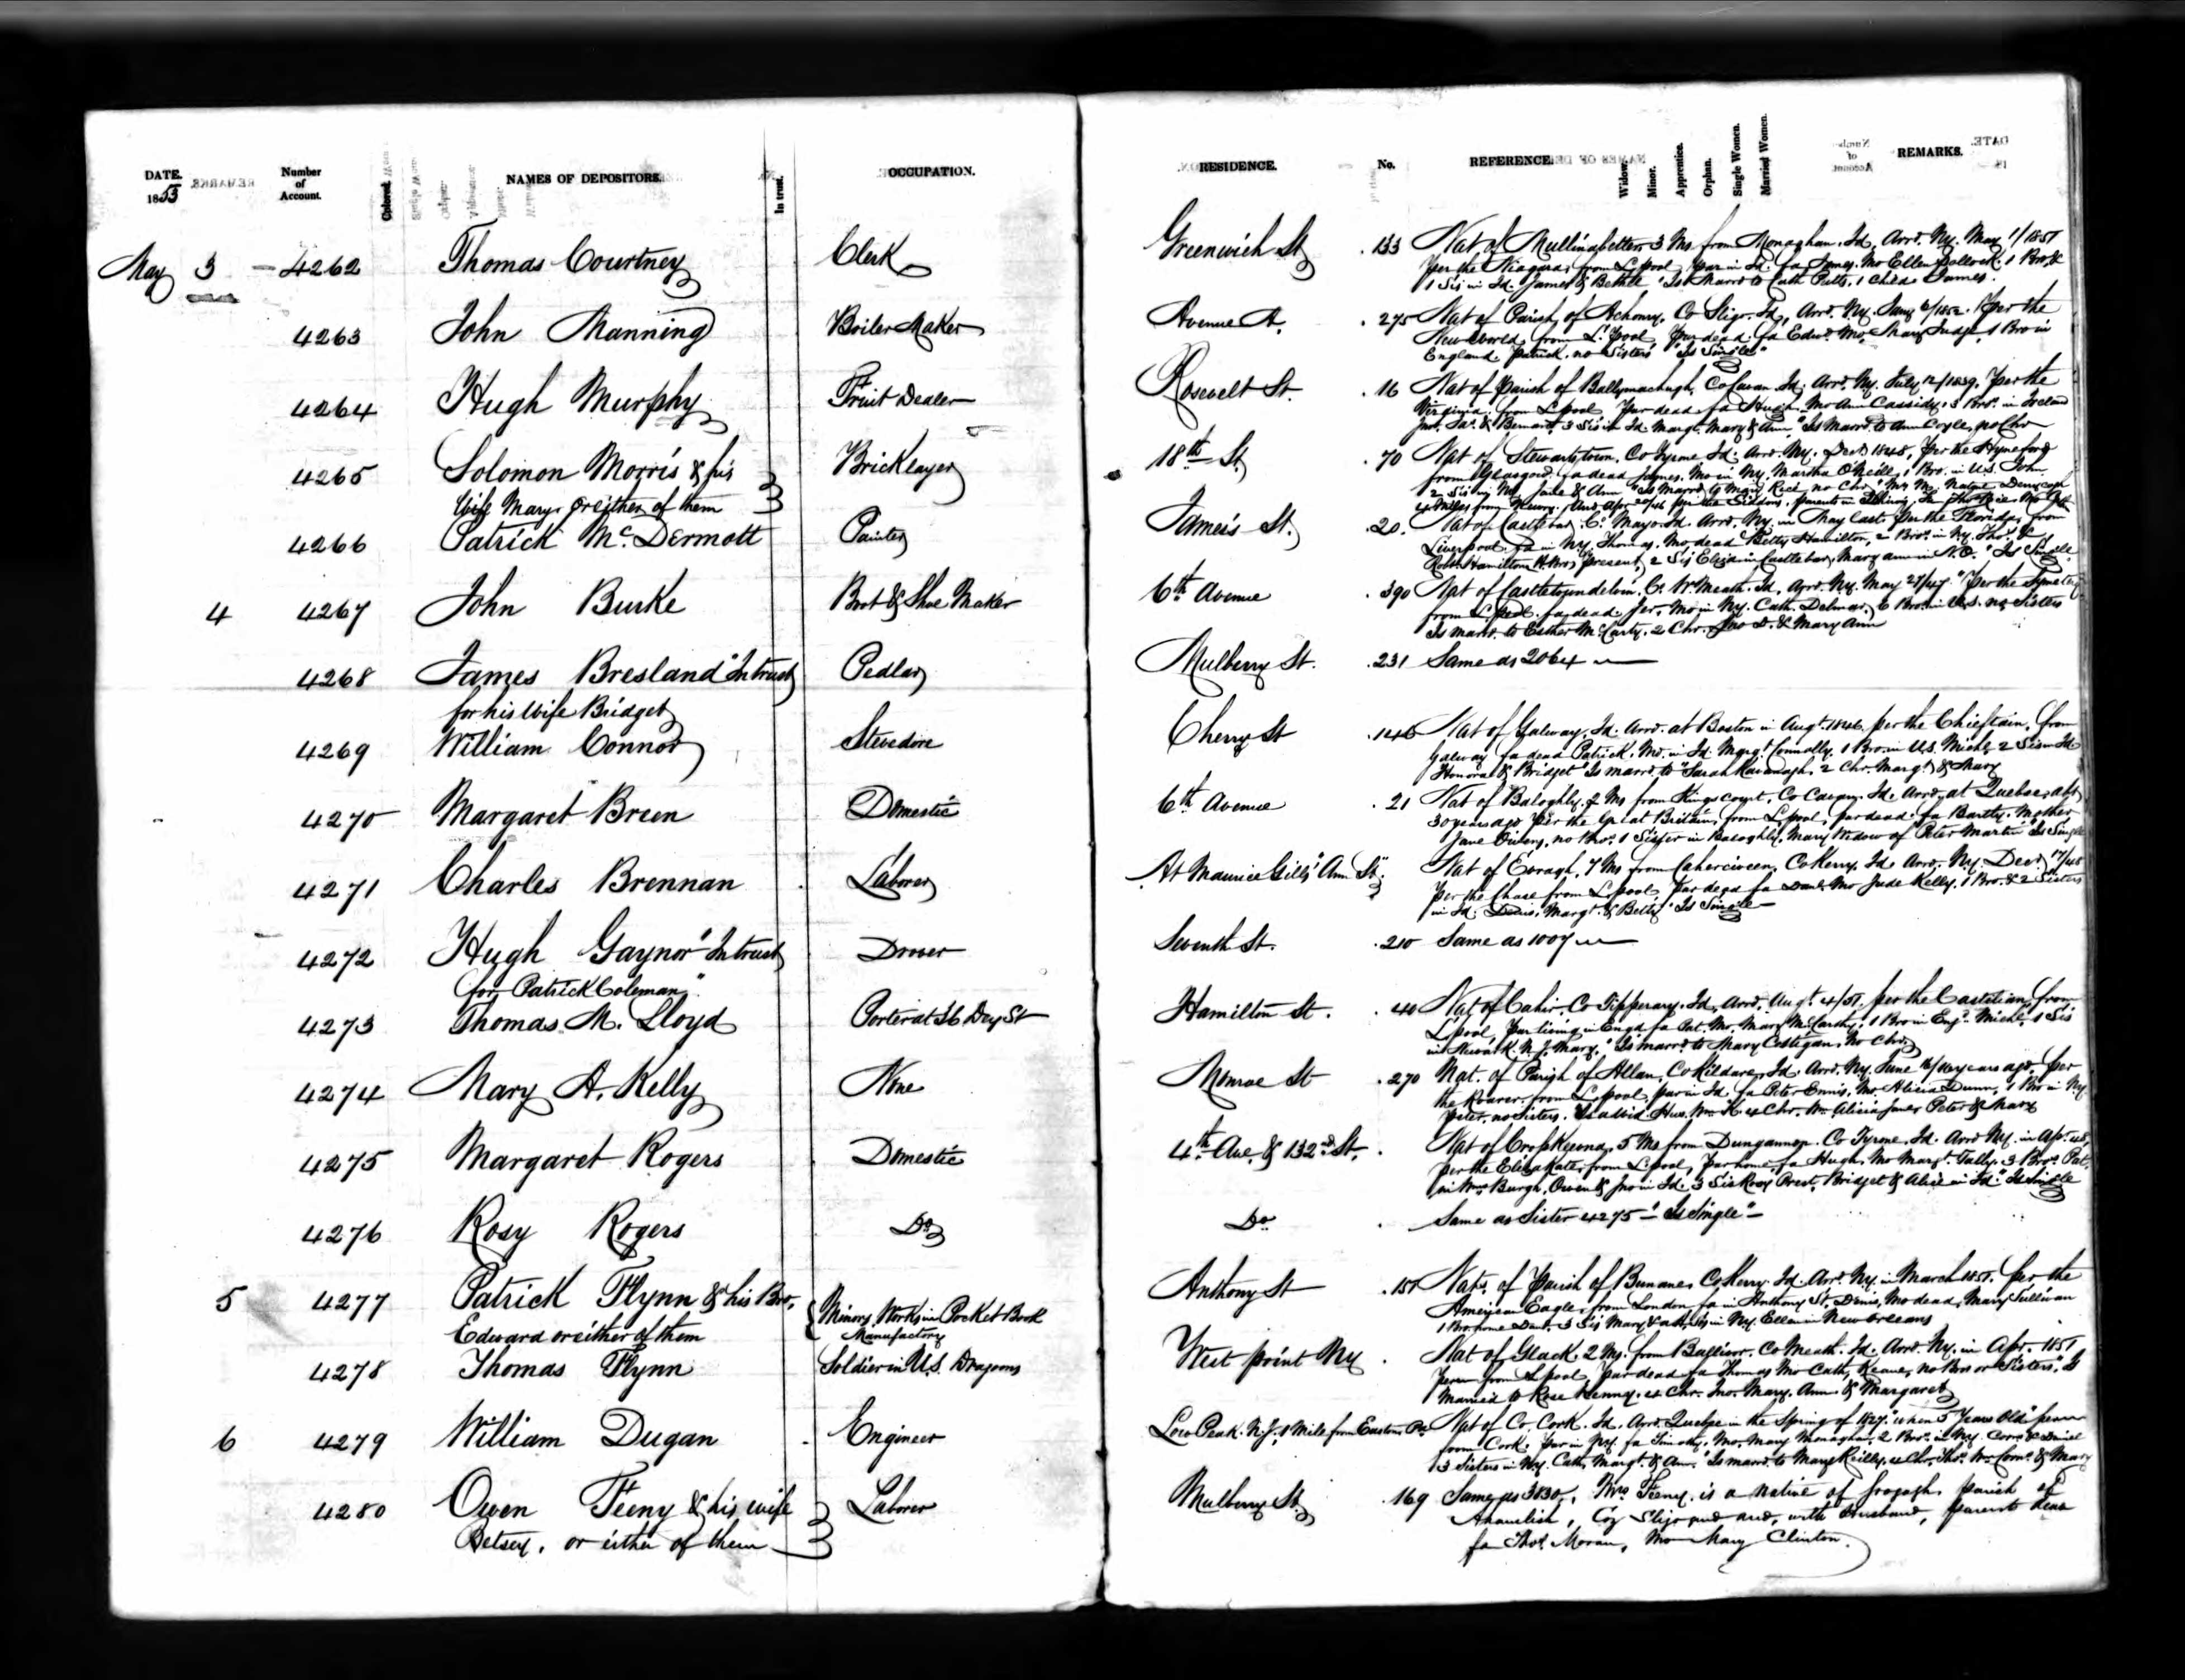 DATE. 1853
Number of Account.
Colored.
NAMES OF DEPOSITORS.
In trust.
OCCUPATION.
RESIDENCE.
No.
REFERENCE.
Widow.
Minor.
Apprentice.
Orphan.
Single Women.
Married Women.
REMARKS.
May 3 4262 Thomas Courtney Clerk Greenwich St 133 Nat of 3 Ms from Monaghan. Id. Arrd. Ny. May 1/1851
per the Niagara, from Lpool, par in Id. fa James. Mo Ellen Pollock. 1 Bro. &
1 Sis in Id. James & Is Marrd to Cath Potts, 1 Child James.
4263 John Manning Boiler Maker Avenue A. 275 Nat of Parish of Achonry. Co Sligo. Id, Arrd. Ny. Jany 6/1852. Per the
New World, from L'pool Par dead. fa Edwd. Mo. Mary Judge, 1 Bro in
England. Patrick. no Sisters "Is Single"
4264 Hugh Murphy Fruit Dealer Rosevelt St. 16 Nat of Parish of Ballymachugh, Co Cavan Id. Arrd. Ny. July 12/1839. Per the
Virginia, from Lpool Par dead. fa Hugh. Mo Ann Cassidy, 3 Bros. in Ireland
Jno. Jas. & Bernard, 3 Sis in Id. Margt. Mary & Ann, "Is Marrd. to Ann Coyle, no Chr
4265 Solomon Morris & his Bricklayer 18th St 70 Nat of Stewartstown. Co Tyrone Id. Arrd. Ny. 1848, Per the
wife Mary. or either of them
from Glasgow. fa dead James. Mo in Ny, Martha O'Neill, 1 Bro. in U.S. John
2 Sis in Ny. Jane & Ann "Is Marrd to Mary Rice no Chr"
4 Miles from Newry,
4266 Patrick McDermott Painter James's St. 20. Nat of Castlebar. Co. Mayo. Id. Arrd. Ny. in May last. Per the Florida, from
Liverpool. fa in Ny, Thomas. Mo dead Betty Hamilton, 2 Bro. in Ny. Thos. &
Robt. Hamilton present, 2 Sis Eliza in Castlebar, Mary ann in N.O. "Is Single
4 4267 John Burke Boot & Shoe Maker 6th Avenue 390 Nat of Castletowndelvin. Co. W. Meath. Id. Arrd. Ny. May 27/47. Per the
from Lpool. fa dead. Mo in Ny. Cath. 6 Bro. in U.S. no Sisters
Is marrd. to Esther McCarty. 2 Chr. Jno D. & Mary Ann
4268 James Bresland "In trust Pedlar Mulberry St. 231 Same as 2064
for his wife Bridget
4269 William Connor Stevedore Cherry St 146 Nat of Galway. Id. Arrd. at Boston in Augt. 1846. per the Chieftain. from
Galway fa dead Patrick. Mo. in Id. Margt. Connolly. 1 Bro in U.S. Michl. 2 Sis in Id
Honora & Bridget "Is marrd. to Sarah Kavanagh. 2 Chr. Margt. & Mary
4270 Margaret Breen Domestic 6th Avenue 21 Nat of Baloghly. 2 Ms from Kingscourt, Co Cavan. Id. Arrd. at Quebec abt
30 years ago Per the Great Britain, from Lpool, par dead. fa Bartly. Mother
Jane Owens, no Bro. 1 Sister in Baloghly, Mary Widow of Peter Martin "Is Single
4271 Charles Brennan Laborer At Maurice Gills "Ann St". Nat of 7 Ms from Caherciveen, Co Kerry. Id. Arrd. Ny. Decr. 17/48
Per the Chase from Lpool, Par dead fa Danl. Mo Jude Kelly. 1 Bro. & 2 Sisters
in Id. Denis, Margt. & Betty "Is Single
4272 Hugh Gaynor "In trust Drover Seventh St. 210 Same as 1007
for Patrick Coleman".
4273 Thomas M. Lloyd Porter at 36 Dey St Hamilton St. 40 Nat of Cahir. Co Tipperary. Id. Arrd. Augt. 4/51. per the from
Lpool, Par living in Engd. fa Pat. Mo. Mary McCarthy. 1 Bro in Engd. Michl. 1 Sis
in Newark. N.J. Mary. "Is marrd to Mary Costigan. No Chr.
4274 Mary A. Kelly None Monroe St 270 Nat. of Parish of Allan, Co Kildare, Id. Arrd. Ny. June years ago, per
the from Lpool, par in Id. fa Peter Ennis. Mo Alicia Dunn, 1 Bro in Ny
Peter, no sisters. Is a Wid. Hus. Wm. K. 4 Chr. Wm. Alicia Jane Peter & Mary
4275 Margaret Rogers Domestic 4th Ave. & 132nd St. Nat of 5 Ms from Dungannon. Co Tyrone, Id. Arrd Ny. in Ap. 48,
per the Eliza Kate, from Lpool, Par home, fa Hugh, Mo Margt. Tally. 3 Bros. Pat.
in Wmsburgh, Owen & Jno in Id. 3 Sis Rosy Prest, Bridget & Alice in Id. Is Single
4276 Rosy Rogers Do Do Same as Sister 4275 "Is Single"
5 4277 Patrick Flynn & his Bro, Minors Works in Pocket Book Anthony St 151 Nats. of Parish of Co Kerry. Id. Arrd. Ny. in March 1851. Per the
Edward or either of them Manufactory
American Eagle, from London, fa in Anthony St. Denis, Mo dead, Mary Sullivan
1 Bro home Danl. 3 Sis Mary in Ny. Ellen in New Orleans
4278 Thomas Flynn Soldier in U.S. Dragoons West point Ny Nat of Glack. 2 Ms. from Ballivor, Co Meath. Id. Arrd. Ny. in Apr. 1851
from Lpool, Par dead fa Thomas Mo Cath. Keane, no Bros or Sisters. Is
Married to Rose Kenny. 4 Chr. Jno. Mary. Ann & Margaret
6 4279 William Dugan Engineer N.J. 1 Mile from Easton Pa. Nat of Co. Cork. Id. Arrd. Quebec in the Spring of 1827. "when 3 Years Old"
from Cork. Par in Ny. fa Timothy. Mo. Mary Monaghan. 2 Bros. in Ny. Corns. & Daniel
3 Sisters in Ny. Cath. Margt. & Ann. Is marrd. to Mary Reilly. 4 Chr. Thos. Wm. Corns. & Mary
4280 Owen Feeny & his wife Laborer Mulberry St 169 Same as 3830, Mrs Feeny is a native of parish of
Betsey, or either of them
Ahamlish, Coy Sligo and arrd, with Husband, parents dead
fa Thos. Moran, Mo Mary Clinton.